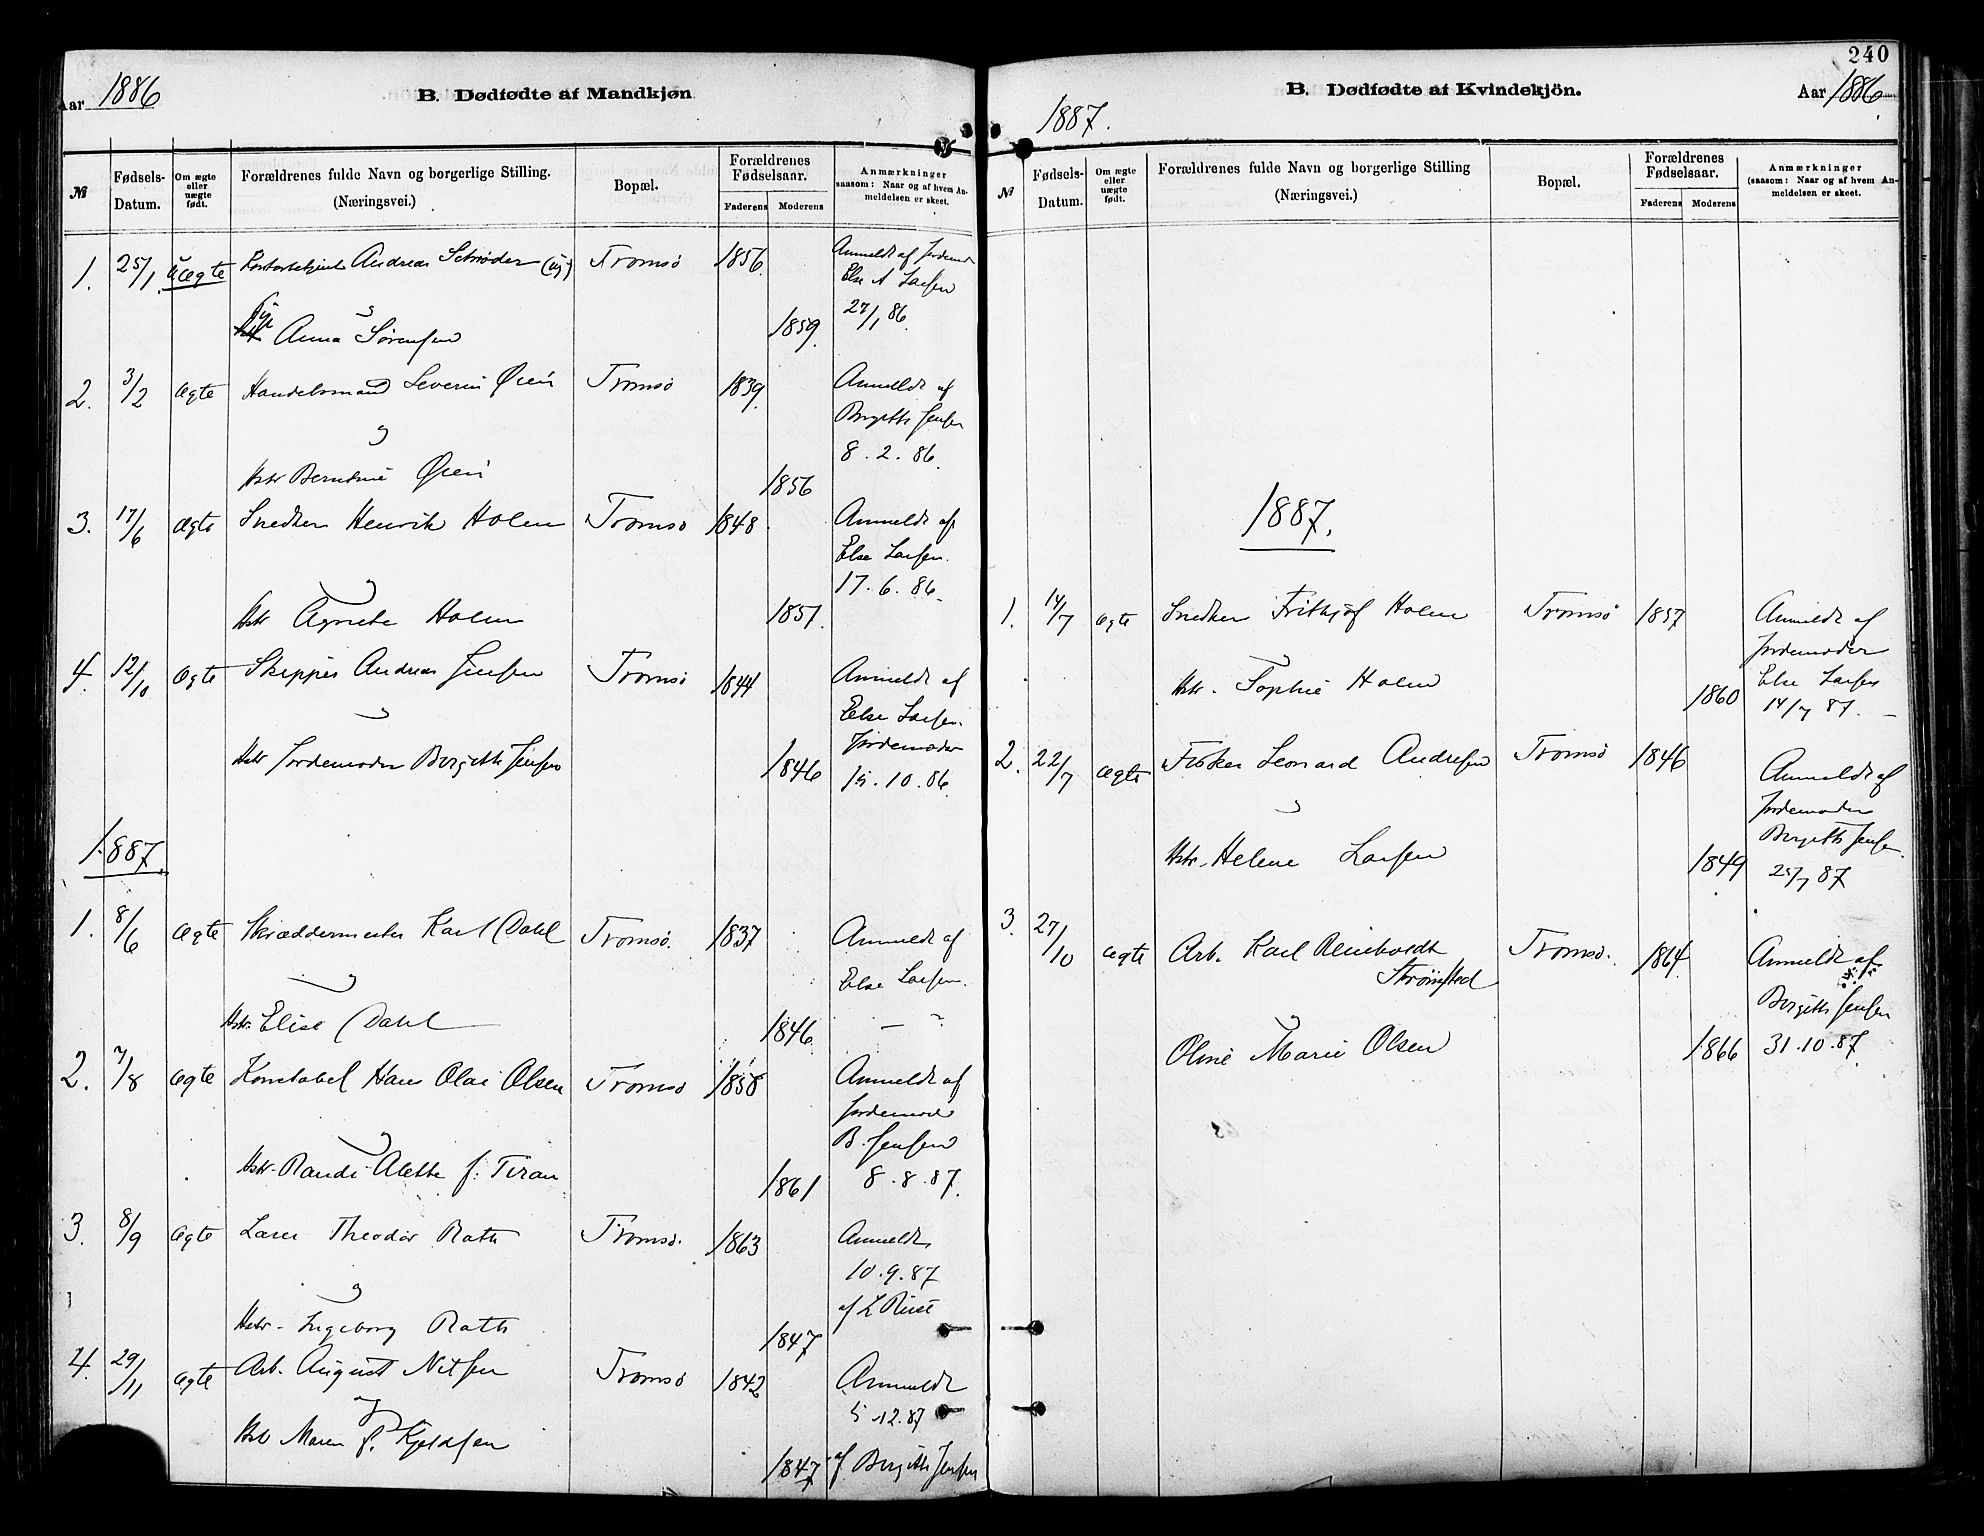 Aar 1886
B. Dødfødte af Mandkjøn
№
Fødsels-Datum.
Om ægte eller uægte født.
Forældrenes fulde Navn og borgerlige Stilling.
(Næringsvei.)
Bopæl.
Forældrenes Fødselsaar.
Faderens
Moderens
Anmærkninger
saasom: Naar og af hvem An-
meldelsen er skeet.
1. 25/1 uægte Andreas Schrøder (ug) Tromsø 1856 Anmeldt af Jordemd
Else A Larsen
27/1 86.
Pige Anna Sørensen 1859.
2. 3/2 ægte Handelsmand Severin Øien Tromsø 1839. Anmeldt af
og Birgitte Jensen
8.2.86.
Hstr Berntine Øien 1856
3. 17/6 ægte Snedker Henrik Holm Tromsø 1848 Anmeldt af
Else Larsen.
og 17.6.86.
Hstr Agnethe Holm 1851.
4. 12/10 ægte Skipper Andreas Jensen Tromsø 1844 Anmeldt af
og Else Larsen.
Jordemoder
Hstr Jordemoder Birgitte Jensen 1846 15.10.86.
1887.
1. 8/6 ægte Skræddermester Karl Dahl Tromsø. 1837 Anmeldt af
og Else Larsen.
Hstr. Elise Dahl 1846.
2. 7/8 ægte Konstabel Hans Olai Olsen Tromsø 1858 Anmeldt af
Jordemoder
og B. Jensen
Hstr. Randi Alette f. Tiran 1861 8.8.87.
3. 8/9 ægte Theodor Rath Tromsø. 1863 Anmeldt
10.9.87
og af
Hstr. Ingeborg Rath 1847
4. 29/11 ægte Arb. August Nilsen Tromsø 1842 Anmeldt
og 5.12.87
Maren f. Kjeldsen 1847 af Birgitte Jensen
240
B. Dødfødte af Kvindekjön.
Aar 1886
1887.
№
Fødsels-Datum.
Om ægte eller uægte født.
Forældrenes fulde Navn og borgerlige Stilling
(Næringsvei.)
Bopæl.
Forældrenes Fødselsaar.
Faderens
Moderens
Anmærkninger
(saasom: Naar og af hvem An-
meldelsen er skeet.
1887.
1. 14/7 ægte Snedker Frithjof Holm Tromsø 1857 Anmeldt af
Jordemoder
Hstr. Sophie Holm 1860 Else Larsen
14/7 87.
2. 22/7 ægte Fisker Leonard Andresen Tromsø 1846 Anmeldt af
og Jordemoder
Birgitte Jensen.
Hstr. Helene Larsen 1849 25/7 87
3. 27/10 ægte Arb. Karl Reinholdt Tromsø. 1864 Anmeldt af
Strømsted
og Birgitte Jensen
Oline Marie Olsen 1866 31.10.87.